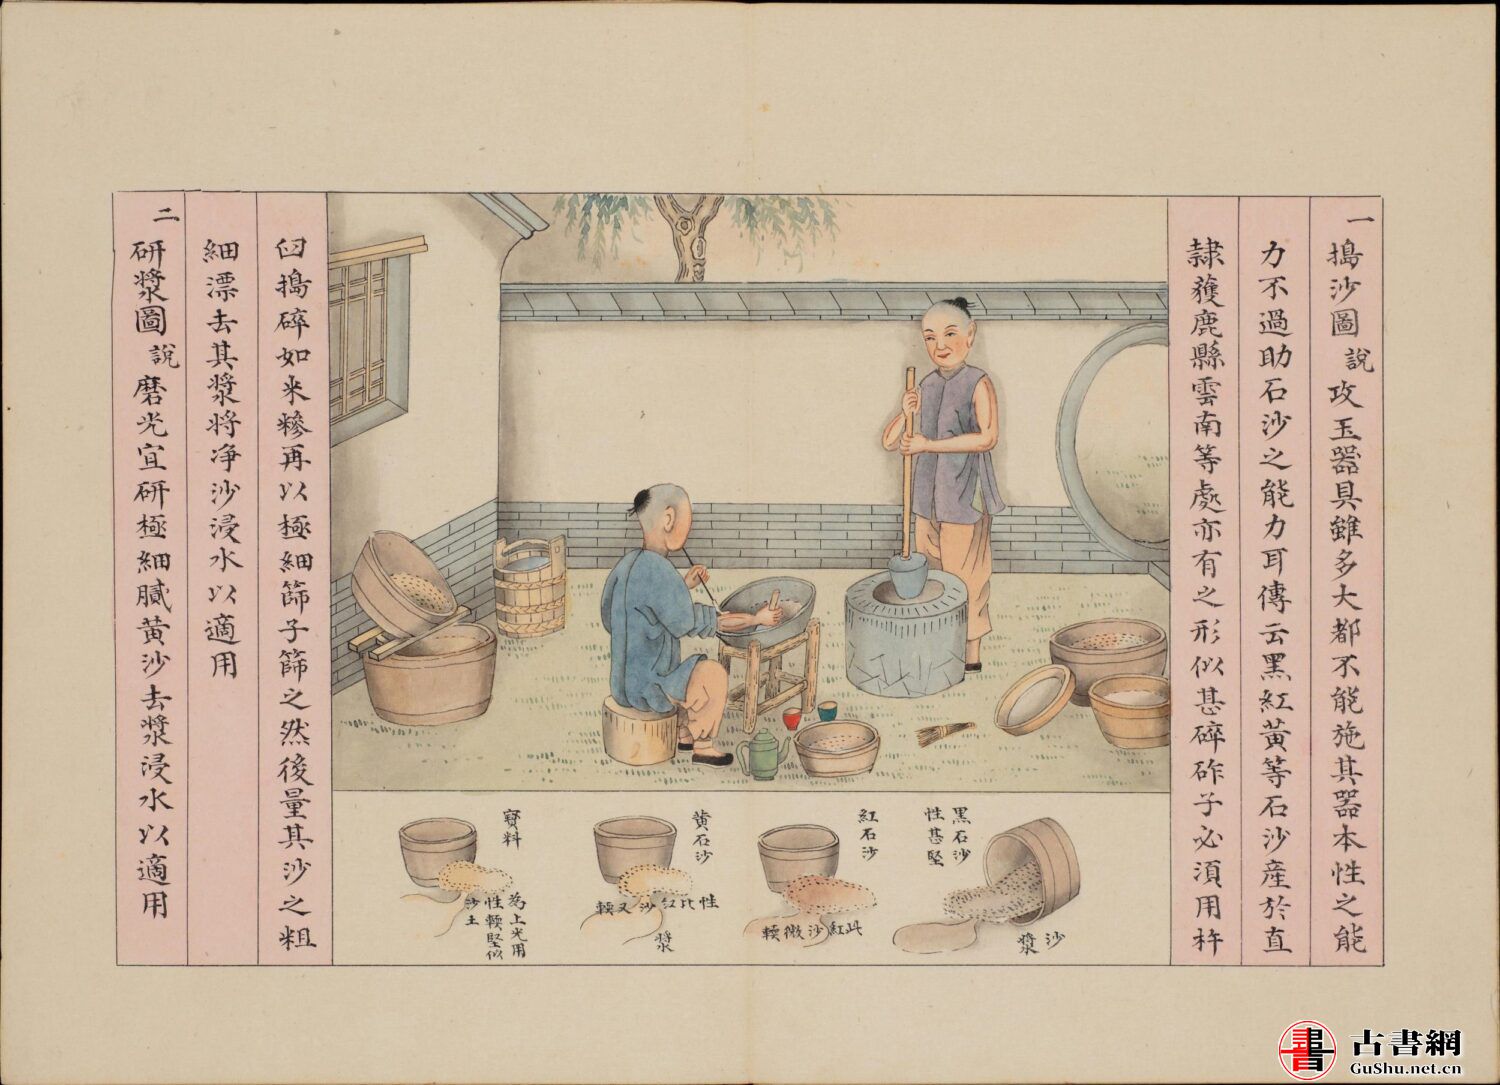 一搗沙圖說攻玉器具雖多大都不能施其器本性之能
力不過助石沙之能力耳傳云黑紅黃等石沙產於直
隸獲鹿縣雲南等處亦有之形似甚碎砟子必須用杵
臼搗碎如米糝再以極細篩子篩之然後量其沙之粗
細漂去其漿將净沙浸水以適用
二研漿圖說磨光宜研極細膩黃沙去漿浸水以適用
黑石沙
性甚堅
沙漿
紅石沙
此紅沙微輭
黃石沙
性比紅沙又輭
漿
寶料
為上光用
性輭堅似
沙土
書
古書網
GuShu.net.cn